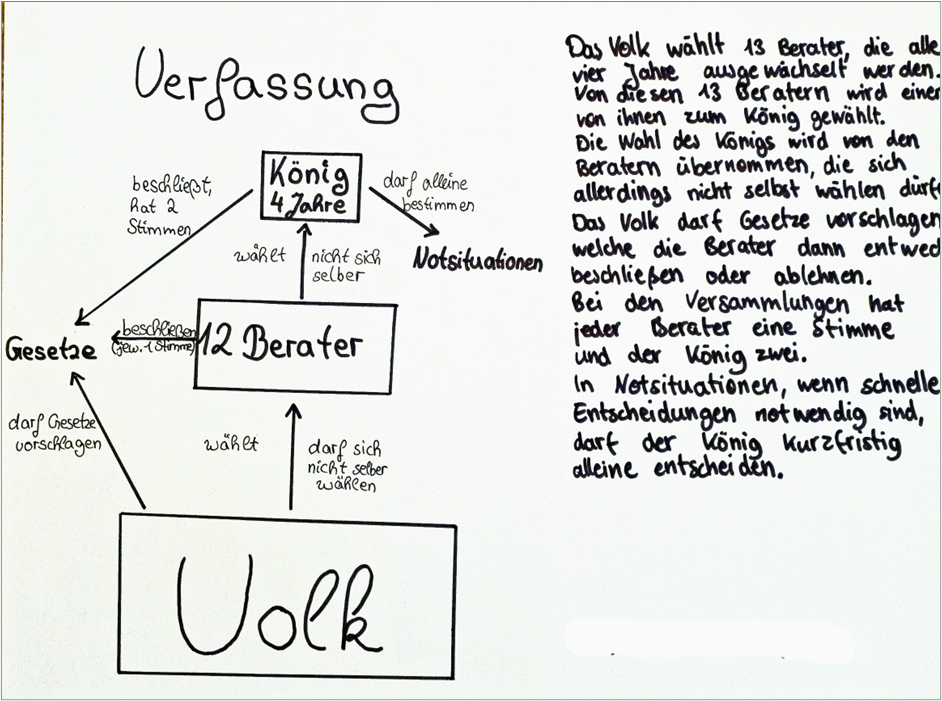 Verfassung
König
4 Jahre
beschließt,
hat 2
Stimmen
darf alleine
bestimmen
Notsituationen
wählt
nicht sich
selber
Gesetze
beschließen
(jew. 1 Stimme)
12 Berater
darf Gesetze
vorschlagen
wählt
darf sich
nicht selber
wählen
Volk
Das Volk wählt 13 Berater, die alle
vier Jahre ausgewächselt werden.
Von diesen 13 Beratern wird einer
von ihnen zum König gewählt.
Die Wahl des Königs wird von den
Beratern übernommen, die sich
allerdings nicht selbst wählen dürf
Das Volk darf Gesetze vorschlagen
welche die Berater dann entwed
beschließen oder ablehnen.
Bei den Versammlungen hat
jeder Berater eine Stimme
und der König zwei.
In Notsituationen, wenn schnelle
Entscheidungen notwendig sind,
darf der König kurzfristig
alleine entscheiden.